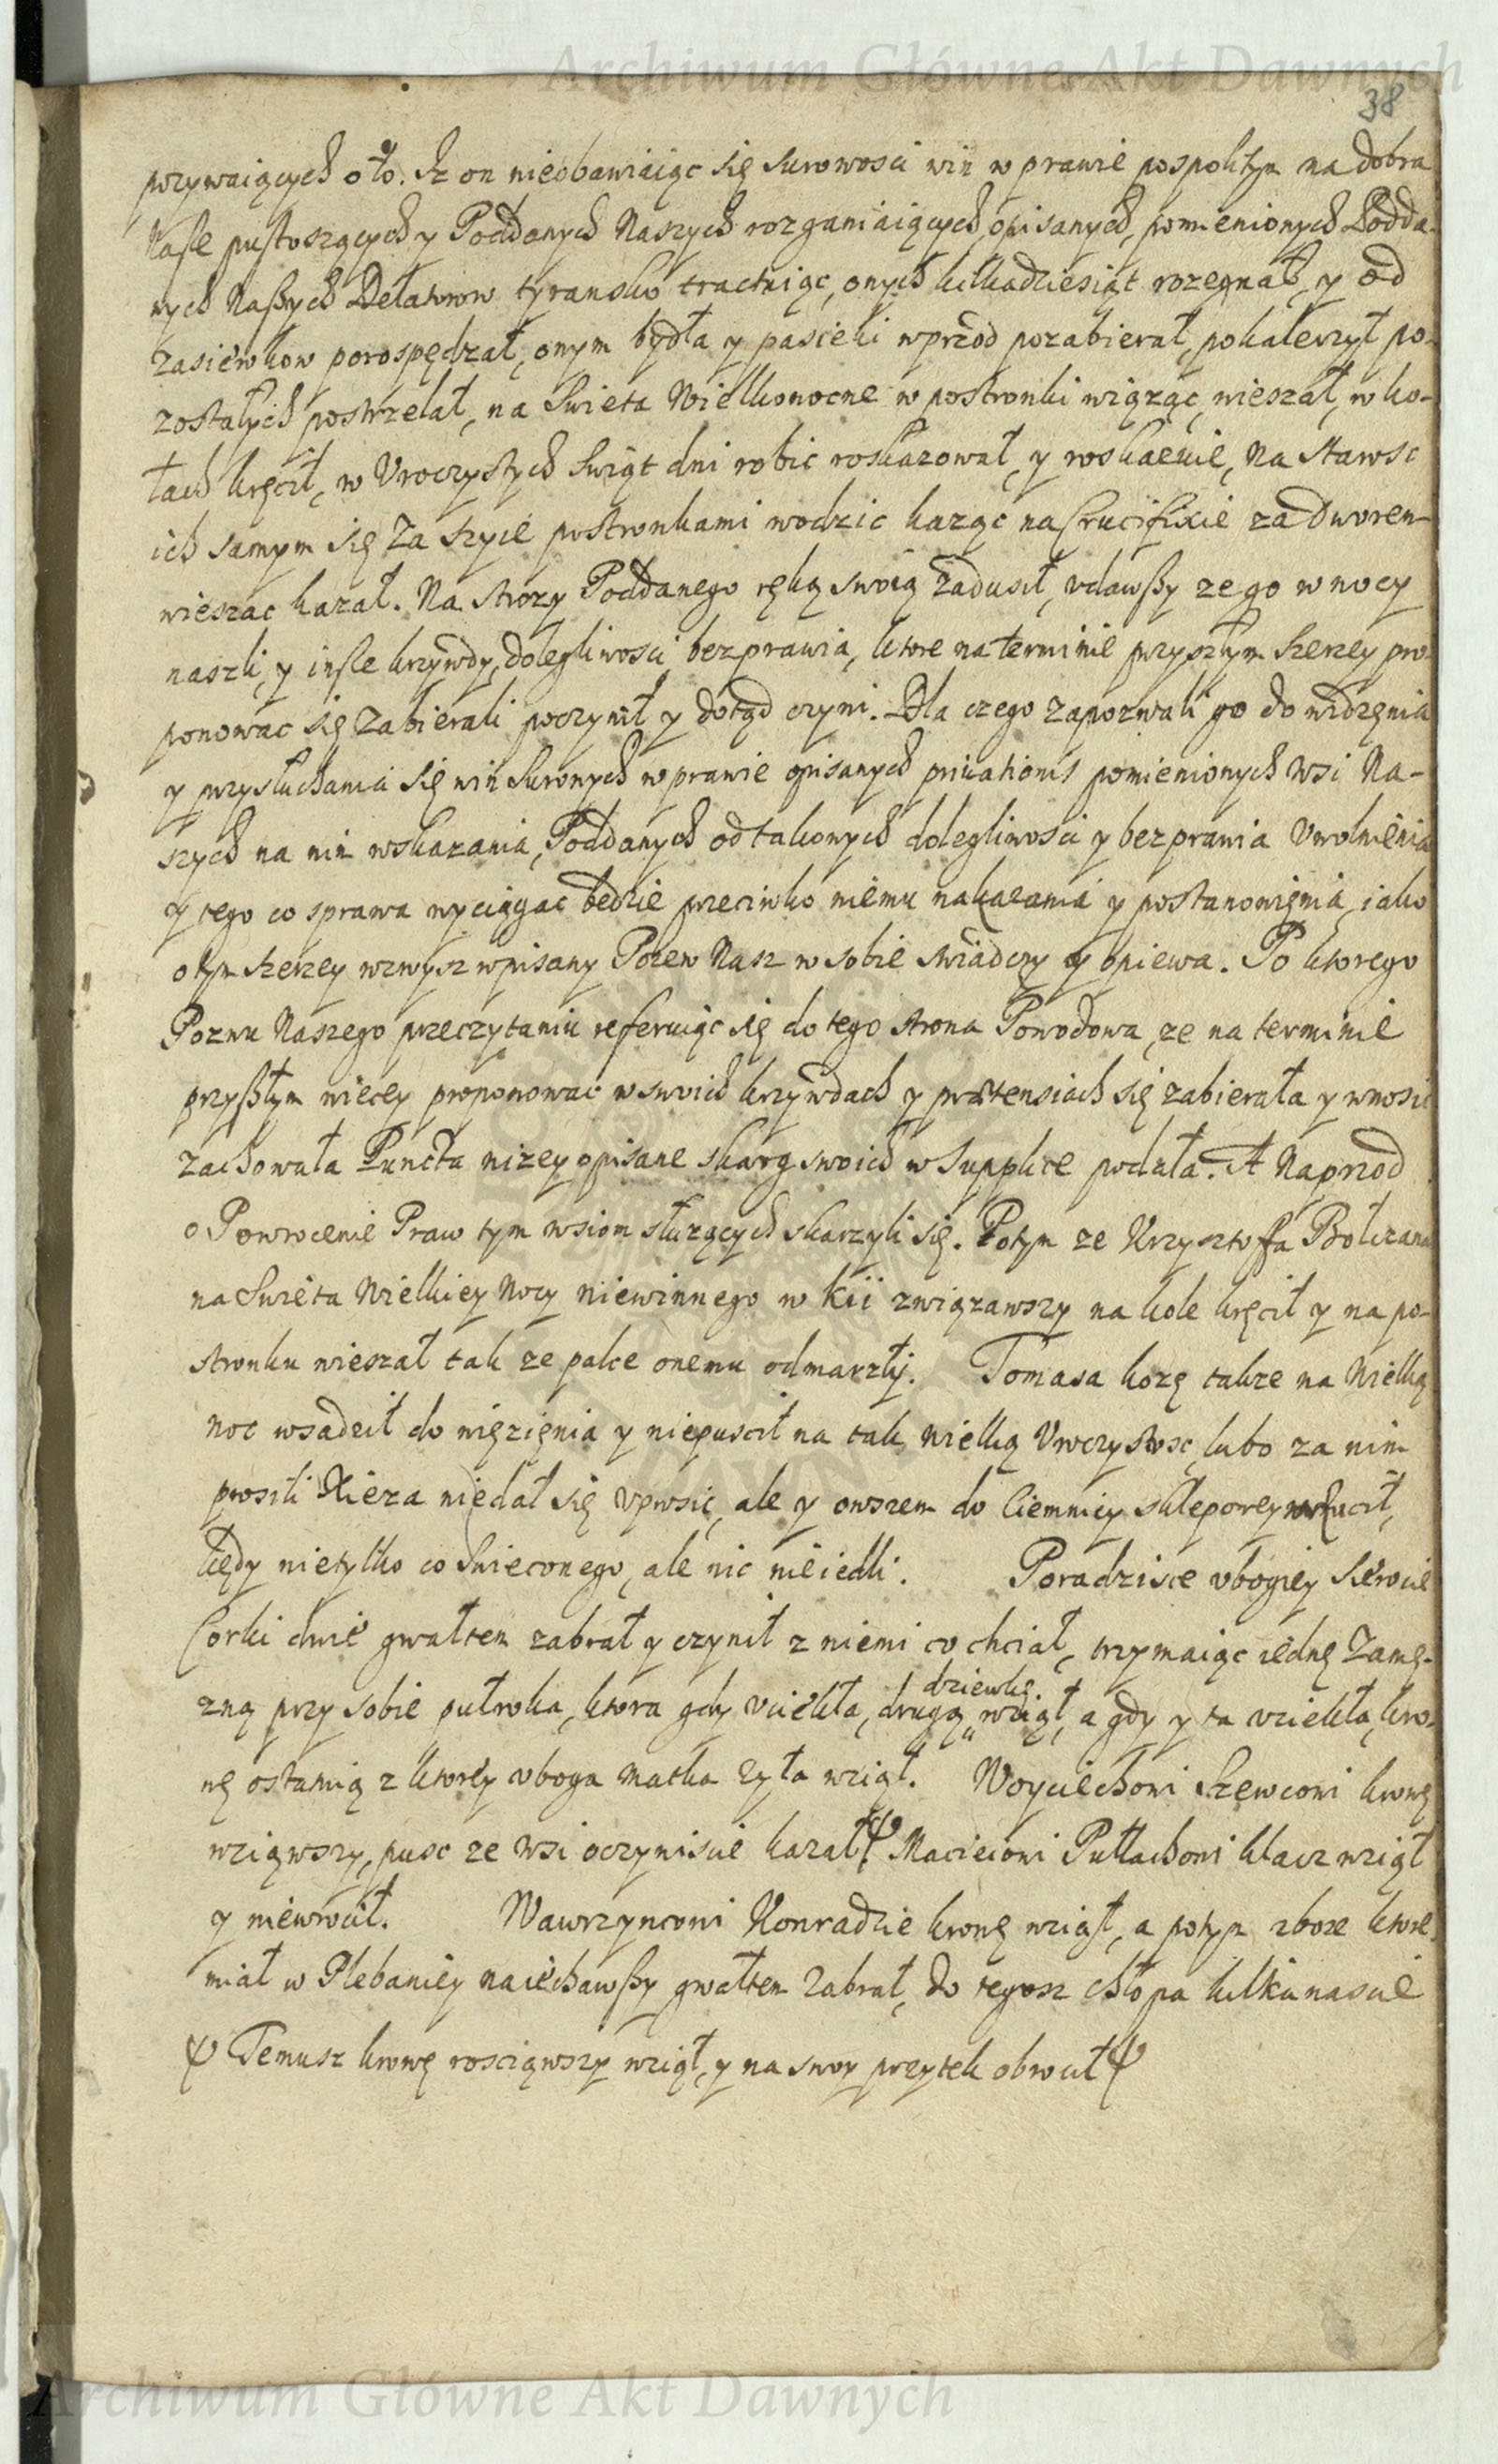 Archiwum Główne Akt Dawnych
38
przywaiących oto. Iz on nieobawiaiąc się surowosci win w prawie pospolitym na dobra
Nasze pustoszących y Poddanych Naszych rozganiaiących opisanych, pomienionych Podda-
nych Naszych Delatorow tyransko tractuiąc, onych kilkadziesiąt rozegnał, y od
zasiewkow porospędzał, onym bydła y pasieki wprzod pozabierał, pokaleczył po-
zostałych postrzelał, na Swieta Wielkonocne w postronki wiążąc, wieszał, w ko-
łach kręcił, w Vroczystych Swiąt dni robic roskazował, y roskaenie, na starosc
ich samym się za szyie postronkami wodzic każąc na Crucifixie za dworem
wieszac kazał. Na strozy Poddanego ręką swoią zadusił, vdawszy ze go w nocy
naszli, y insze krzywdy, dolegliwosci bezprawia, ktore na terminie przyszłym szerzey pro-
ponowac się zabierali poczynił y dotąd czyni. Dla czego zapozwali go do widzęnia
y przysłuchania się win surowych w prawie opisanych privationis pomienionych Wsi Na-
szych na nim wskazania, Poddanych od takowych dolegliwosci y bezprawia Vwolnienia
y tego co sprawa wyciągac będzie przeciwko niemu nakazania y postanowięnia, iako
o tym szerzey wzwysz wpisany Pozew Nasz w sobie swiadczy y opiewa. Po ktorego
Pozwu Naszego przeczytaniu referuiąc się do tego strona Powodowa, ze na terminie
przyszłym wiecey proponowac w swoich krzywdach y prætensiach się zabierała y wnosic
zachowała Puncta nizey opisane skarg swoich w Supplice podała. A Naprzod
o Powrocenie Praw tym wsiom słuzących skarzyli się. Potym ze Krzysztoffa Bołczana
na Swieta Wielkiey Nocy niewinnego w kii związawszy na kole kręcił y na po-
stronku wieszał tak ze palce onemu odmarzły. Tomasa kozę takze na Wielką
noc wsadził do więzięnia y niepuscił na tak wielką Vroczystosc, lubo za nim
prosili Xieza niedał się vprosic, ale y owszem do Ciemnicy sklepowey wrzucił,
kędy nietylko co Swieconego, ale nic nieiedli. Poradzisce vbogiey Sierocie
Corki dwie gwałtem zabrał y czynił z niemi co chciał, trzymaiąc iednę zamę-
zną przy sobie pułroka, ktora gdy vciekła, drugą dziewkę wziął, a gdy y ta vciekła, kro-
wę ostatnią z ktorey vboga matka zyła wziął. Woyciechowi Szewcowi krowę
wziąwszy, pusc ze wsi oczyniscie kazał. Macieiowi Putłachowi klacz wziął
y niewrocił. Wawrzyncowi Konradzie krowę wziął, a potym zboze ktore
miał w Plebaniey naiechawszy gwałtem zabrał, do tegosz chłopa kilkanascie
Temusz krowę rosciąwszy wziął, y na swoy pozytek obrocił
Archiwum Główne Akt Dawnych